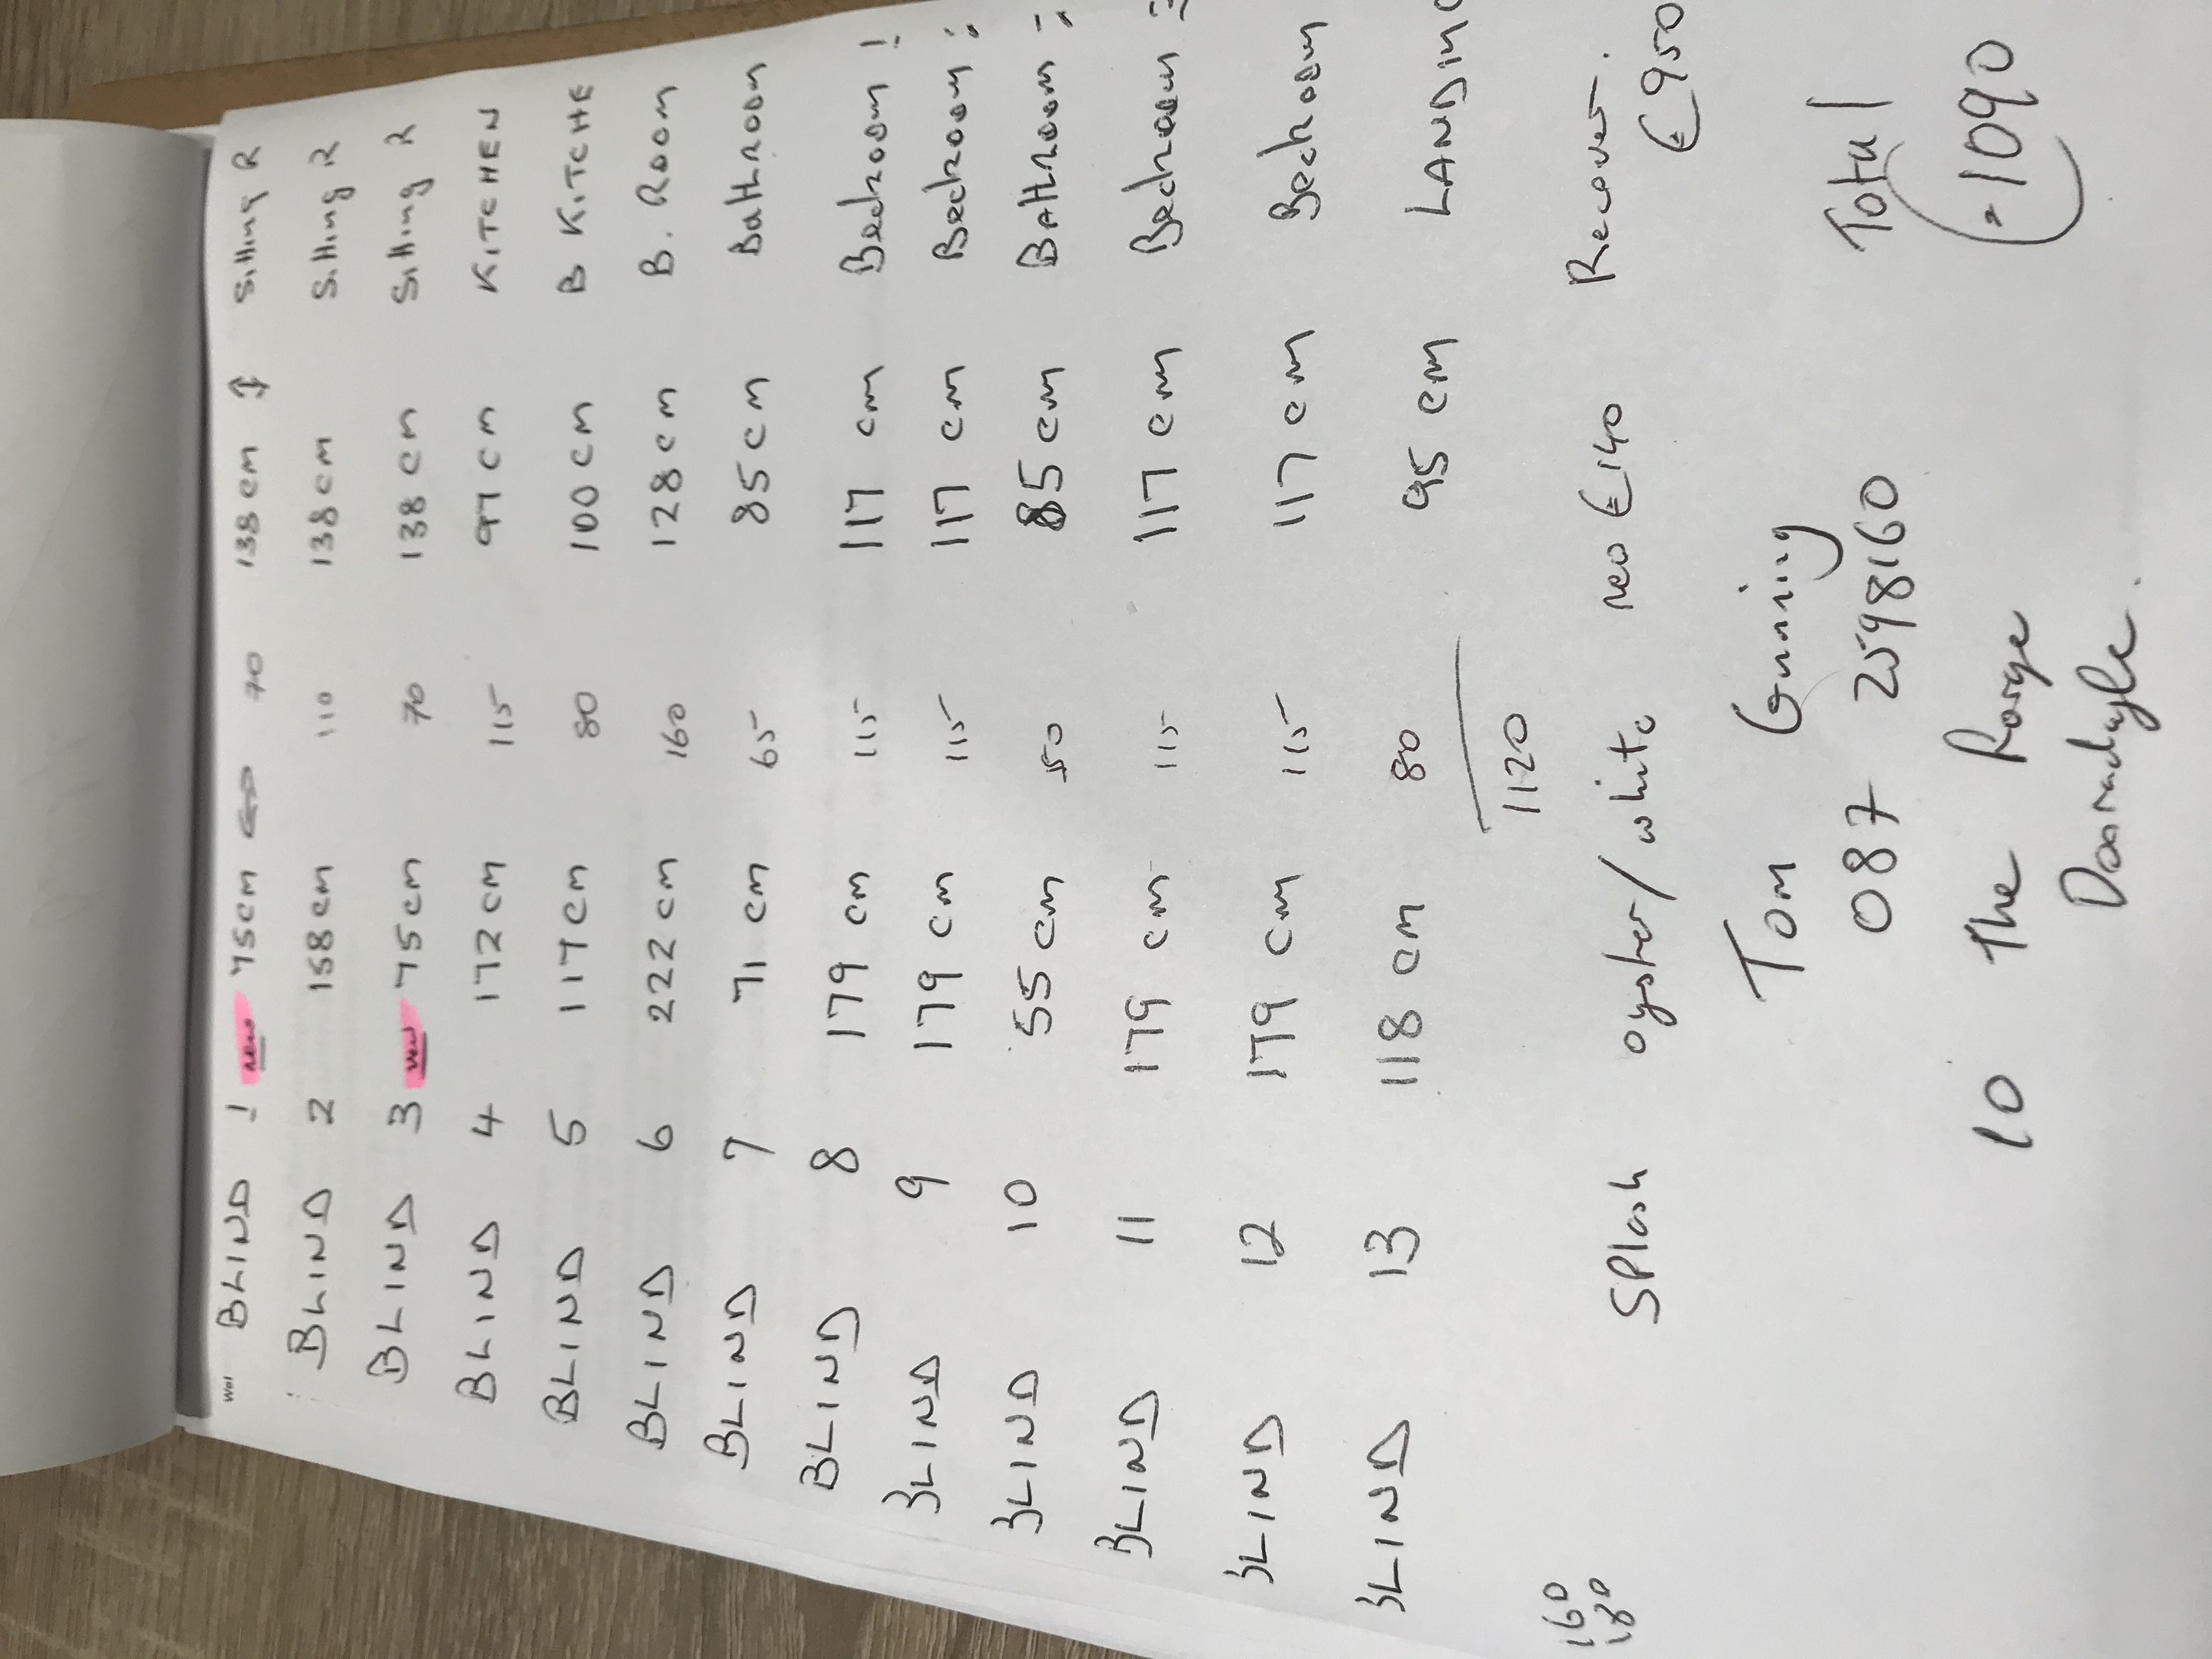 BLIND 1 new 75cm ⇔ 70 138cm ⇕ Sitting R
BLIND 2 158cm 110 138cm Sitting R
BLIND 3 new 75cm 70 138cm Sitting R
BLIND 4 172cm 115 97cm KITCHEN
BLIND 5 117cm 80 100cm B KITCHE
BLIND 6 222cm 160 128cm B. Room
BLIND 7 71cm 65 85cm Bathroom
BLIND 8 179 cm 115 117 cm Bedroom 1
BLIND 9 179 cm 115 117 cm Bedroom
BLIND 10 55cm 50 85cm Bathroom
BLIND 11 179 cm 115 117 cm Bedroom
BLIND 12 179 cm 115 117 cm Bedroom
BLIND 13 118 cm 80 95 cm LANDIN
1120
160
180
SPlash oyster/white new €140 Recover.
€950
Tom Gunning Total
087 2598160
10 The Range €1090